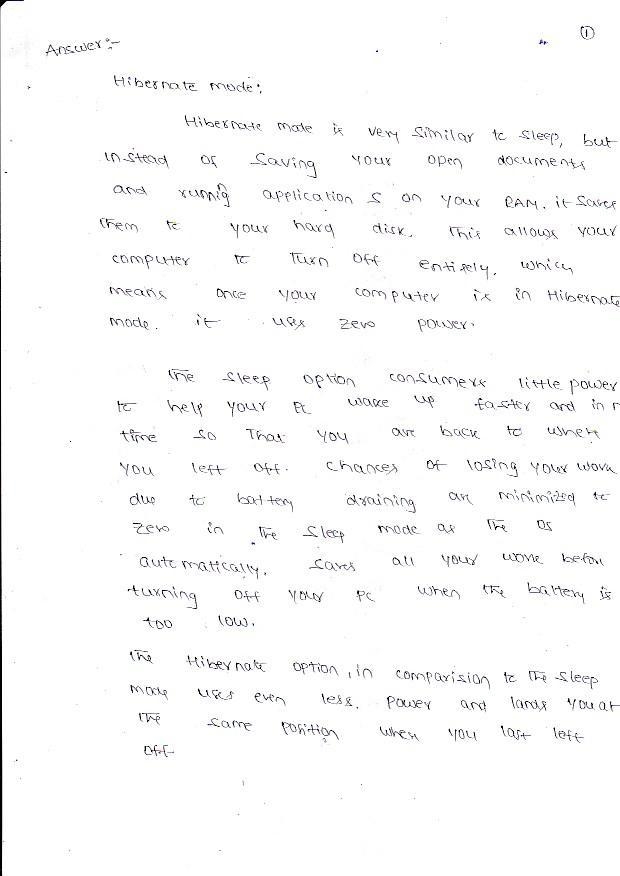 1
Answer :-
Hibernate mode:
Hibernate mode is very similar to sleep, but
instead of saving your open documents
and runnig applications on your RAM. it saves
them to your hard disk. This allows your
computer to Turn off entirely. which
means once your computer is in Hibernate
mode. it uses zero power.
The sleep option consumers little power
to help your PC wake up faster and in
time so That you are back to when
you left off. chances of losing your work
due to battery draining are minimized to
zero in The sleep mode as The OS
automatically. saves all your work before
turning off your PC when The battery is
too low.
The Hibernate option, in comparision to The sleep
mode uses even less. power and lands you at
The same position when you last left
off